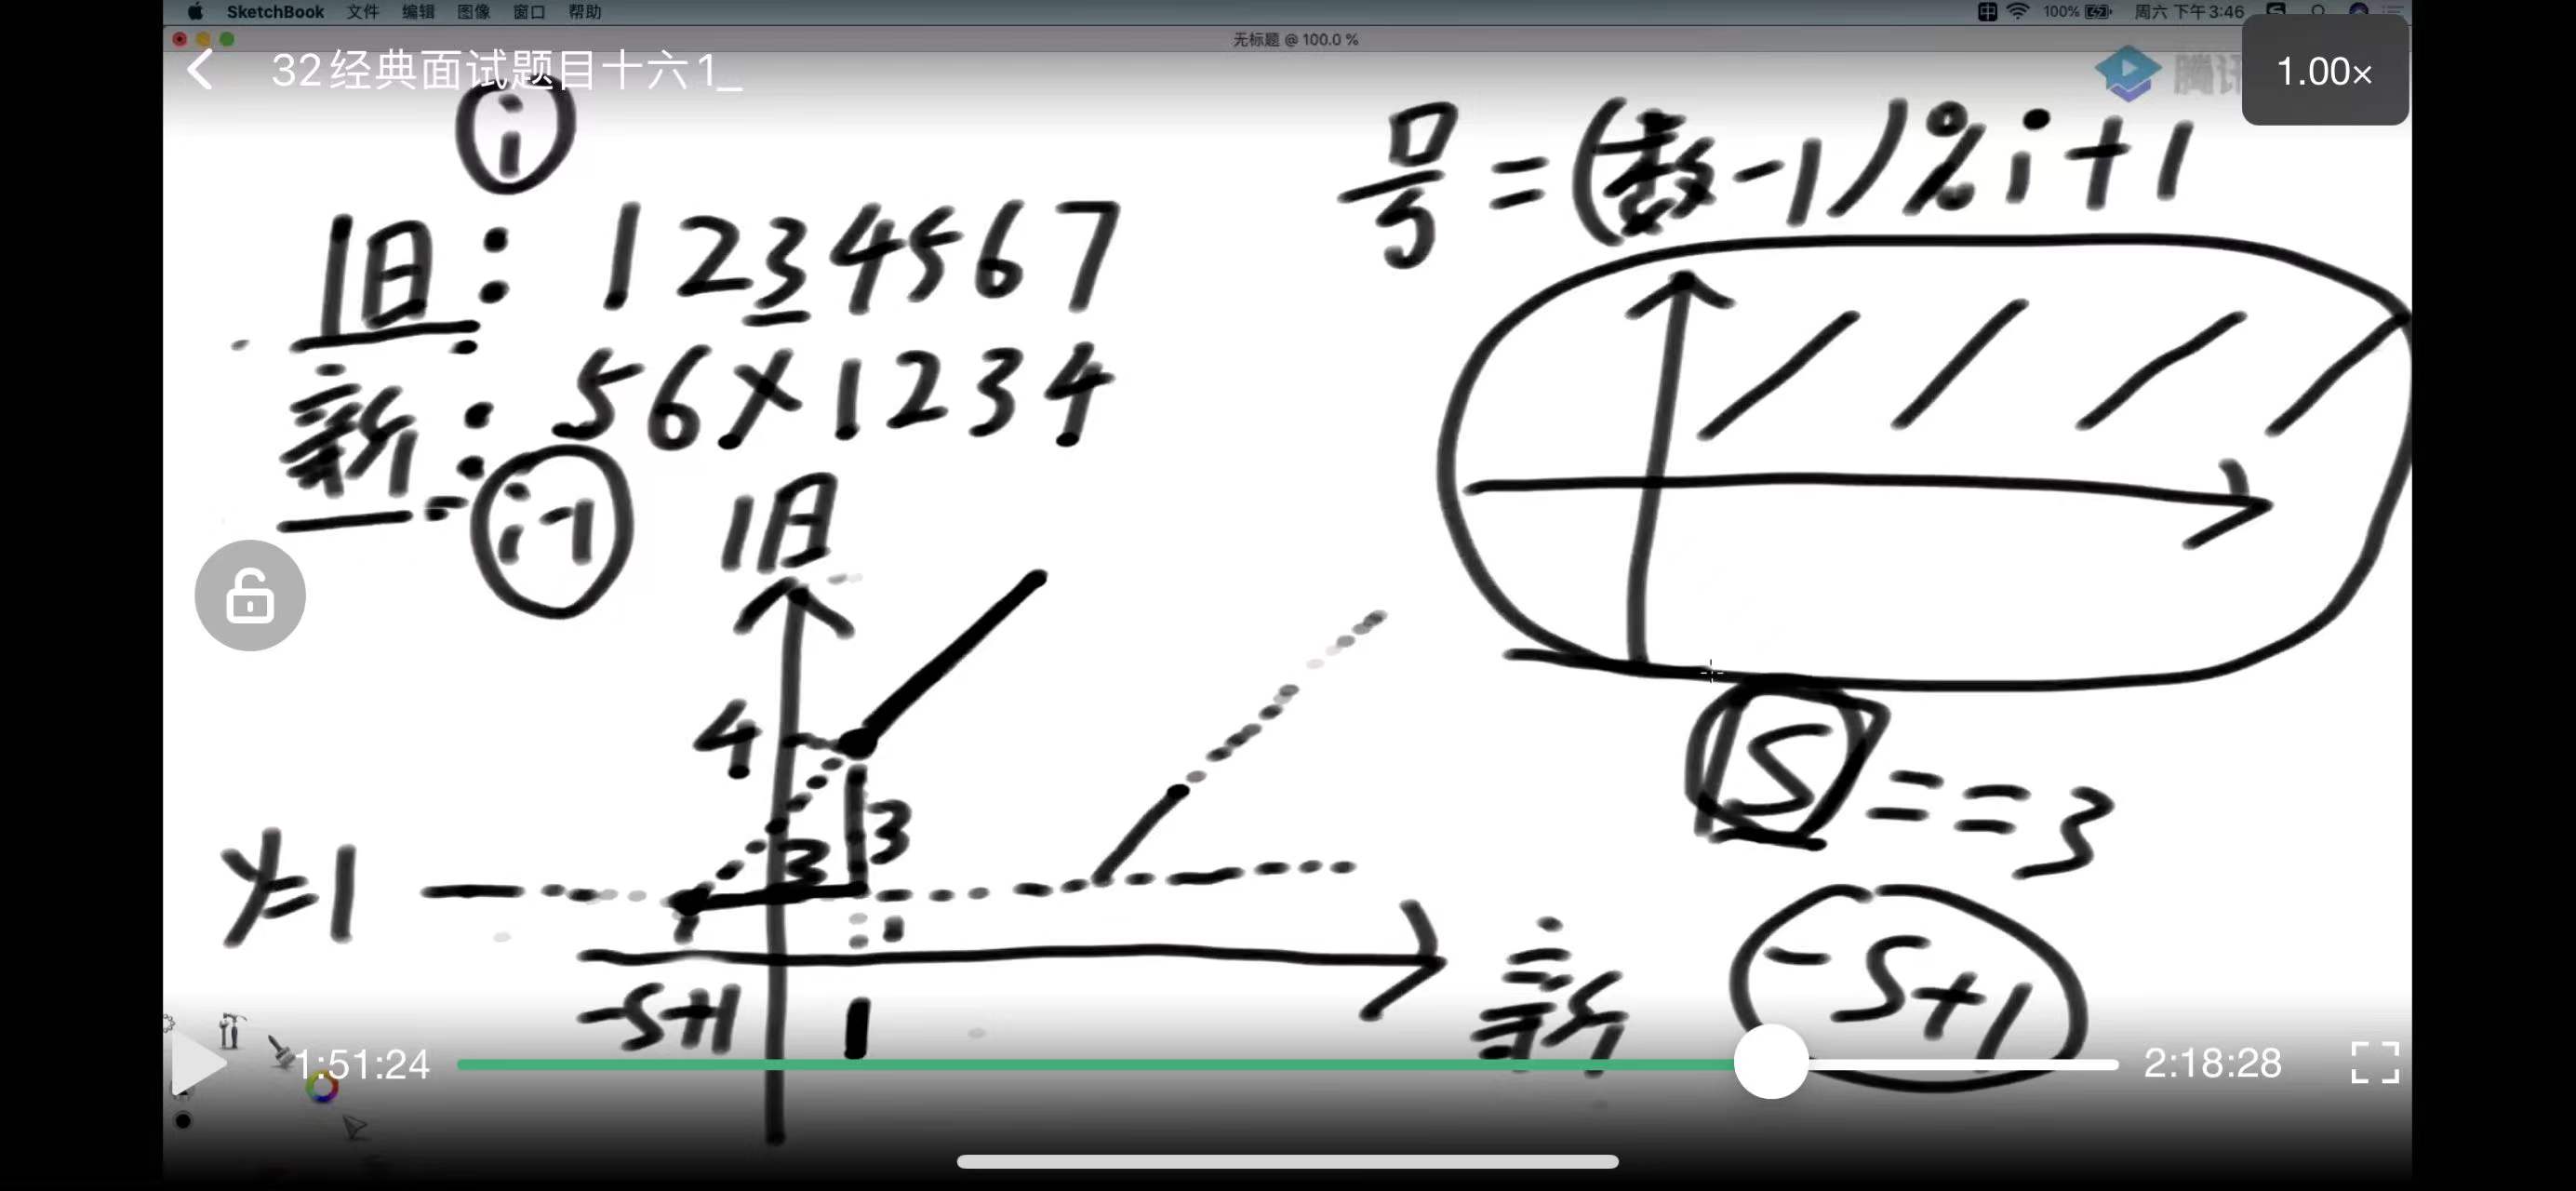 SketchBook 文件 编辑 图像 窗口 帮助
中 100% 周六 下午3:46
无标题 @ 100.0 %
32经典面试题目十六1_
腾讯
1.00×
i
号=(数-1)%i+1
旧: 1234567
新: 56X1234
i-1
旧
4
3
3
y=1
1
-S+1
1
新
S==3
-S+1
1:51:24
2:18:28